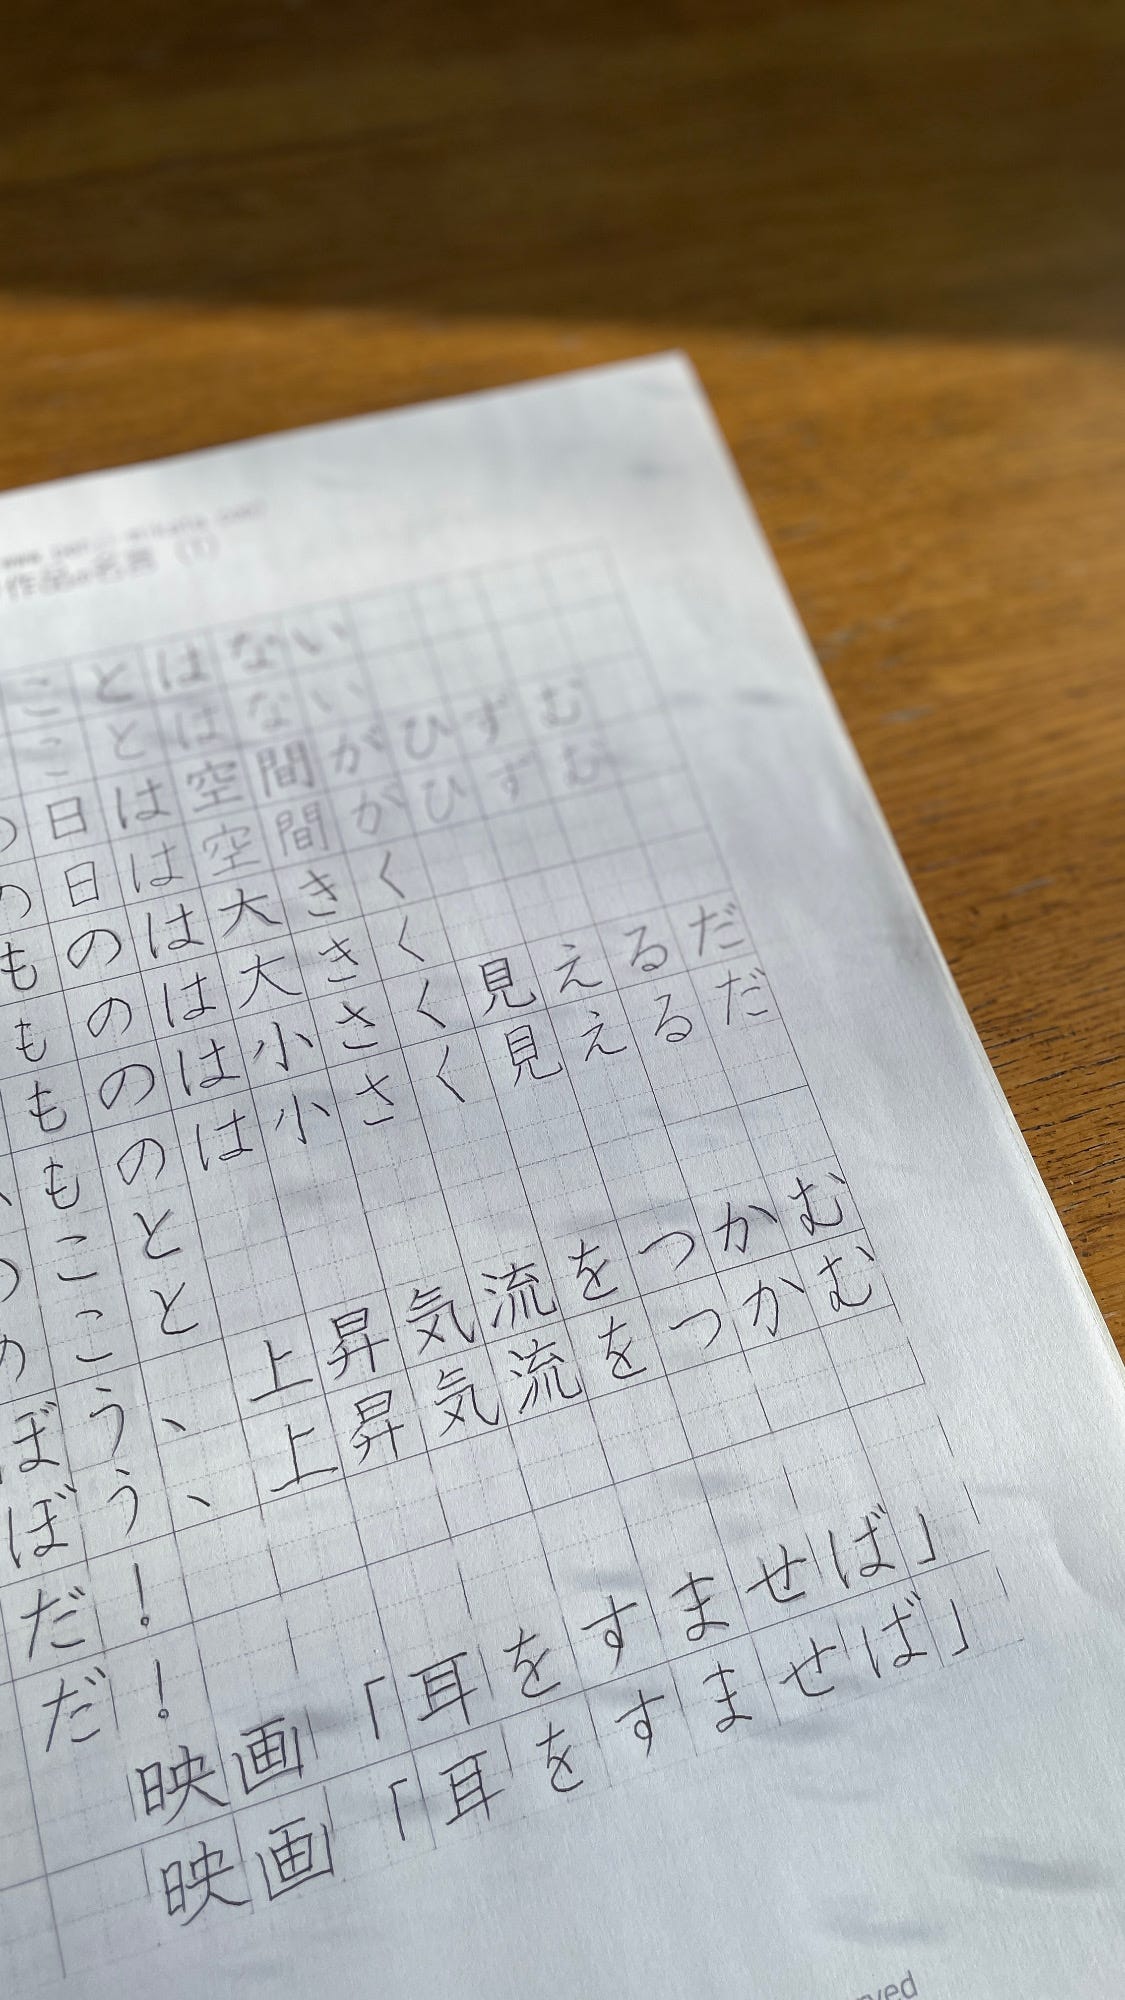 作品の名言 (1)
ことはない
ことはない
の日は空間がひずむ
の日は空間がひずむ
ものは大きく
ものは大きく
ものは小さく見えるだ
ものは小さく見えるだ
のこと
のこと
ぼう、上昇気流をつかむ
ぼう、上昇気流をつかむ
だ!
だ!
映画「耳をすませば」
映画「耳をすませば」
ved